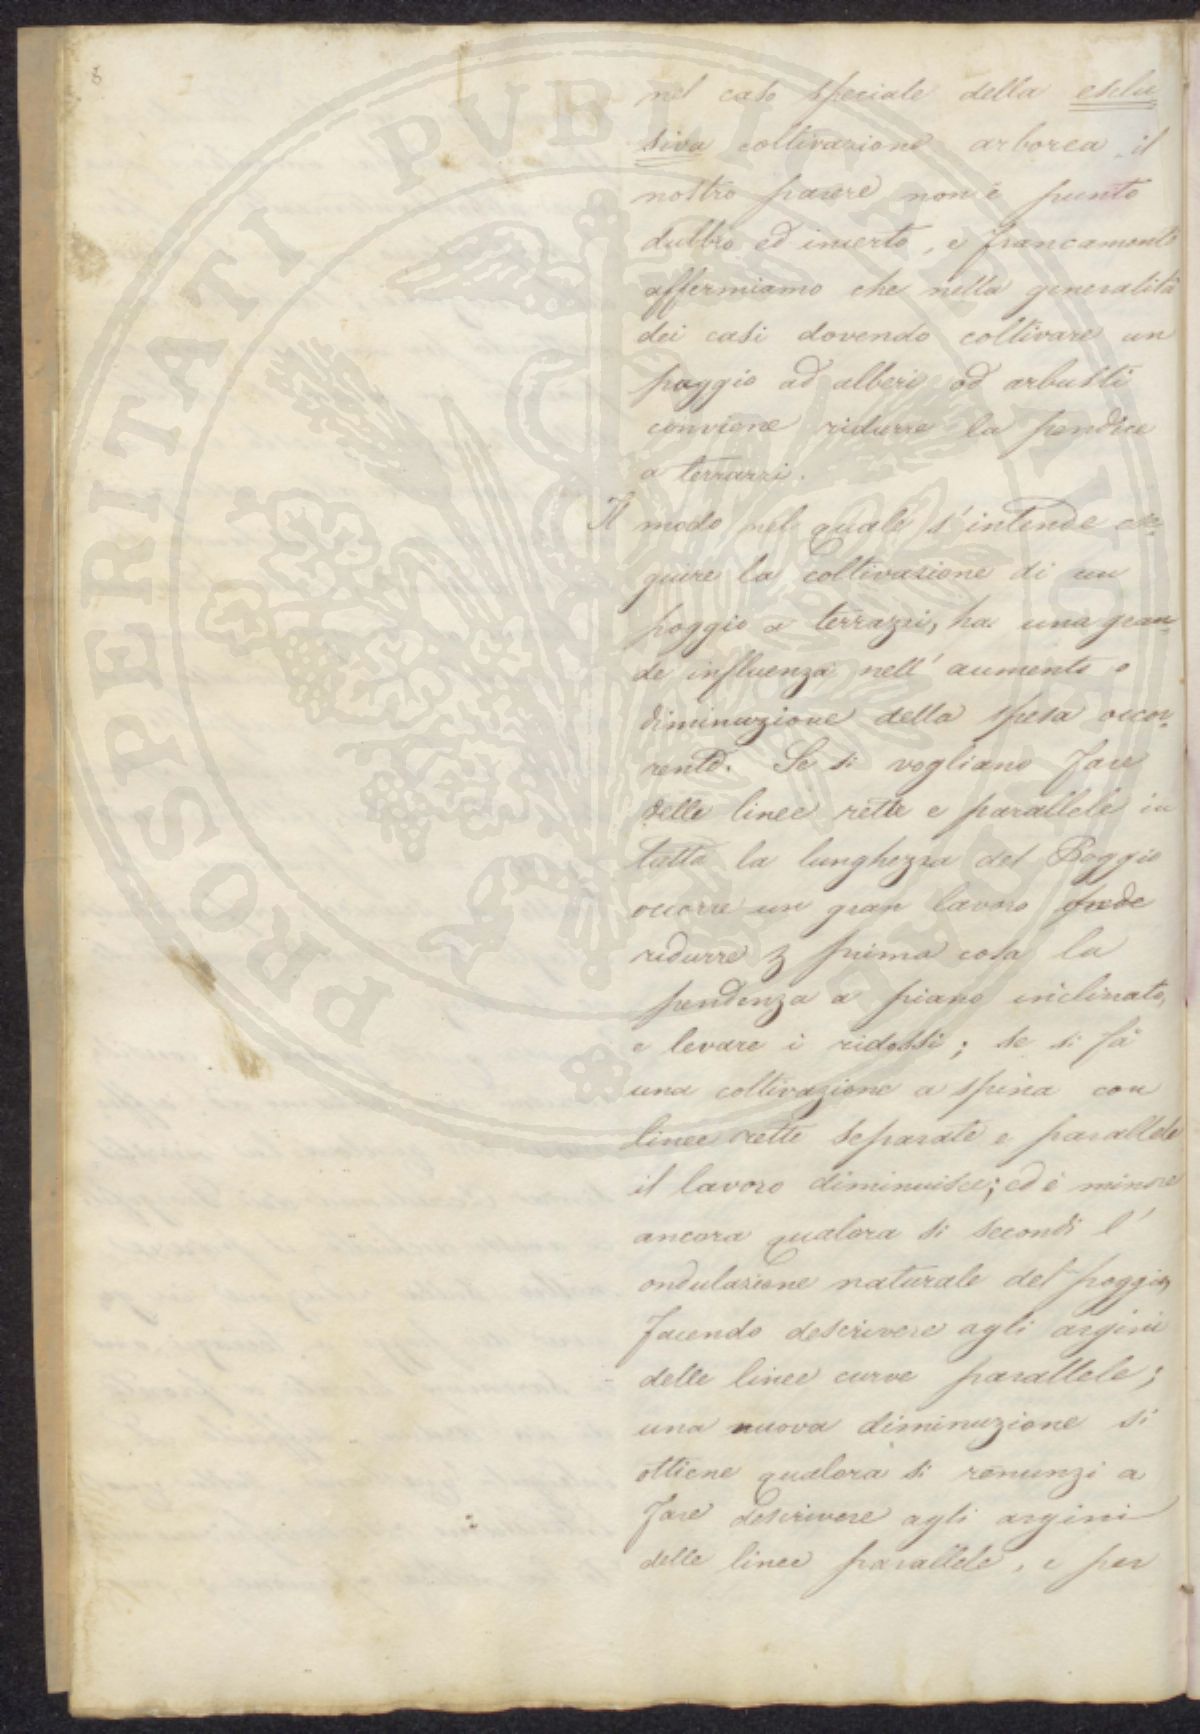 8
nel caso speciale della esclu-
siva coltivazione arborea il
nostro parere non è punto
dubbio ed incerto, e francamente
affermiamo che nella generalità
dei casi dovendo coltivare un
poggio ad alberi od arbusti
conviene ridurre la pendice
a terrazzi.
Il modo nel quale s'intende ese-
guire la coltivazione di un
poggio a terrazzi, ha una gran-
de influenza nell'aumento o
diminuzione della spesa occor-
rente. Se si vogliano fare
delle linee rette e parallele in
tutta la lunghezza del Poggio
occorre un gran lavoro
ridurre prima cosa la
pendenza a piano inclinato,
e levare i ridossi; se si fà
una coltivazione a spina con
linee rette separate e parallele
il lavoro diminuisce; ed è minore
ancora qualora si secondi l'
ondulazione naturale del poggio,
facendo descrivere agli argini
delle linee curve parallele;
una nuova diminuzione si
ottiene qualora si renunzi a
fare descrivere agli argini
delle linee parallele, e per
PROSPERITATI PVBLICAE